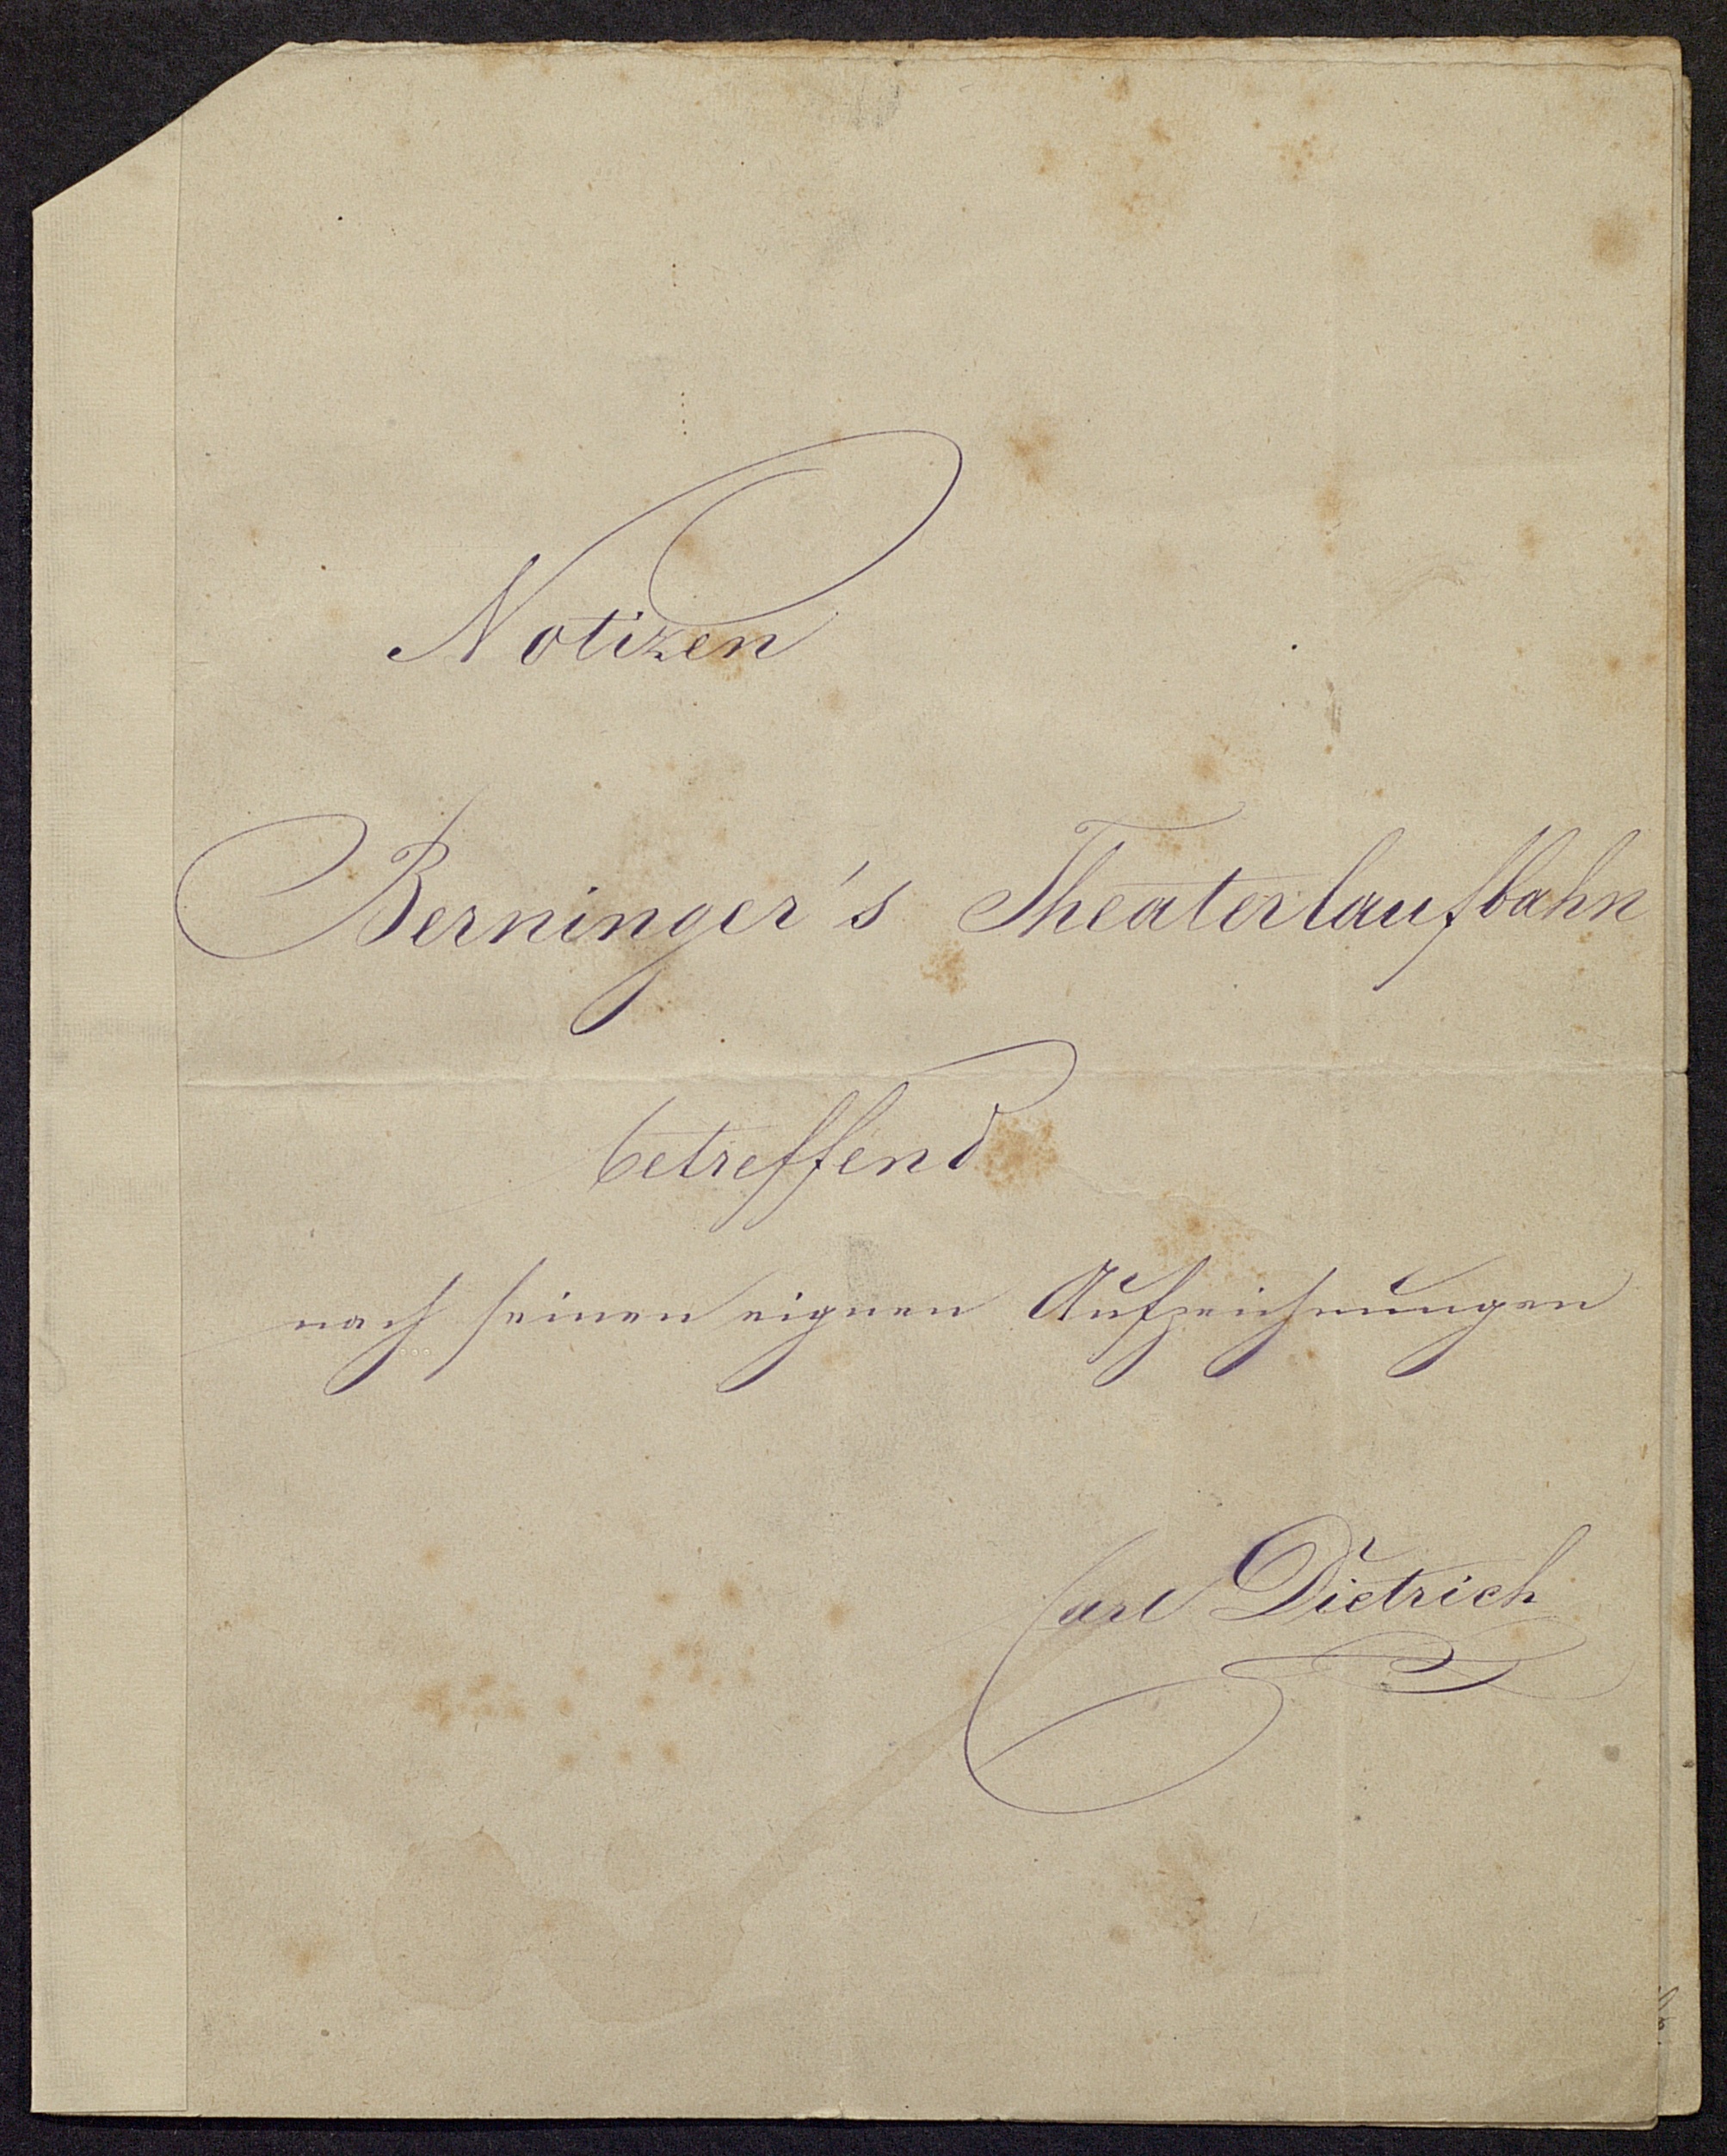 Notizen
Berninger's Theaterlaufbahn
betreffend
nach seinen eignen Aufzeichnungen
Carl Dietrich